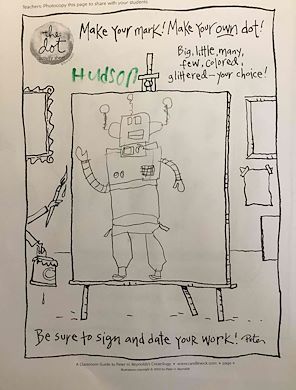 Teachers: Photocopy this page to share with your students
the
dot
Make your mark! Make your own dot!
Big, little, many,
few, colored,
glittered—your choice!
Hudson
Be sure to sign and date your work! Peter
A Classroom Guide to Peter H. Reynolds's Creatrilogy • www.candlewick.com • page 4
Illustrations copyright © by Peter H. Reynolds